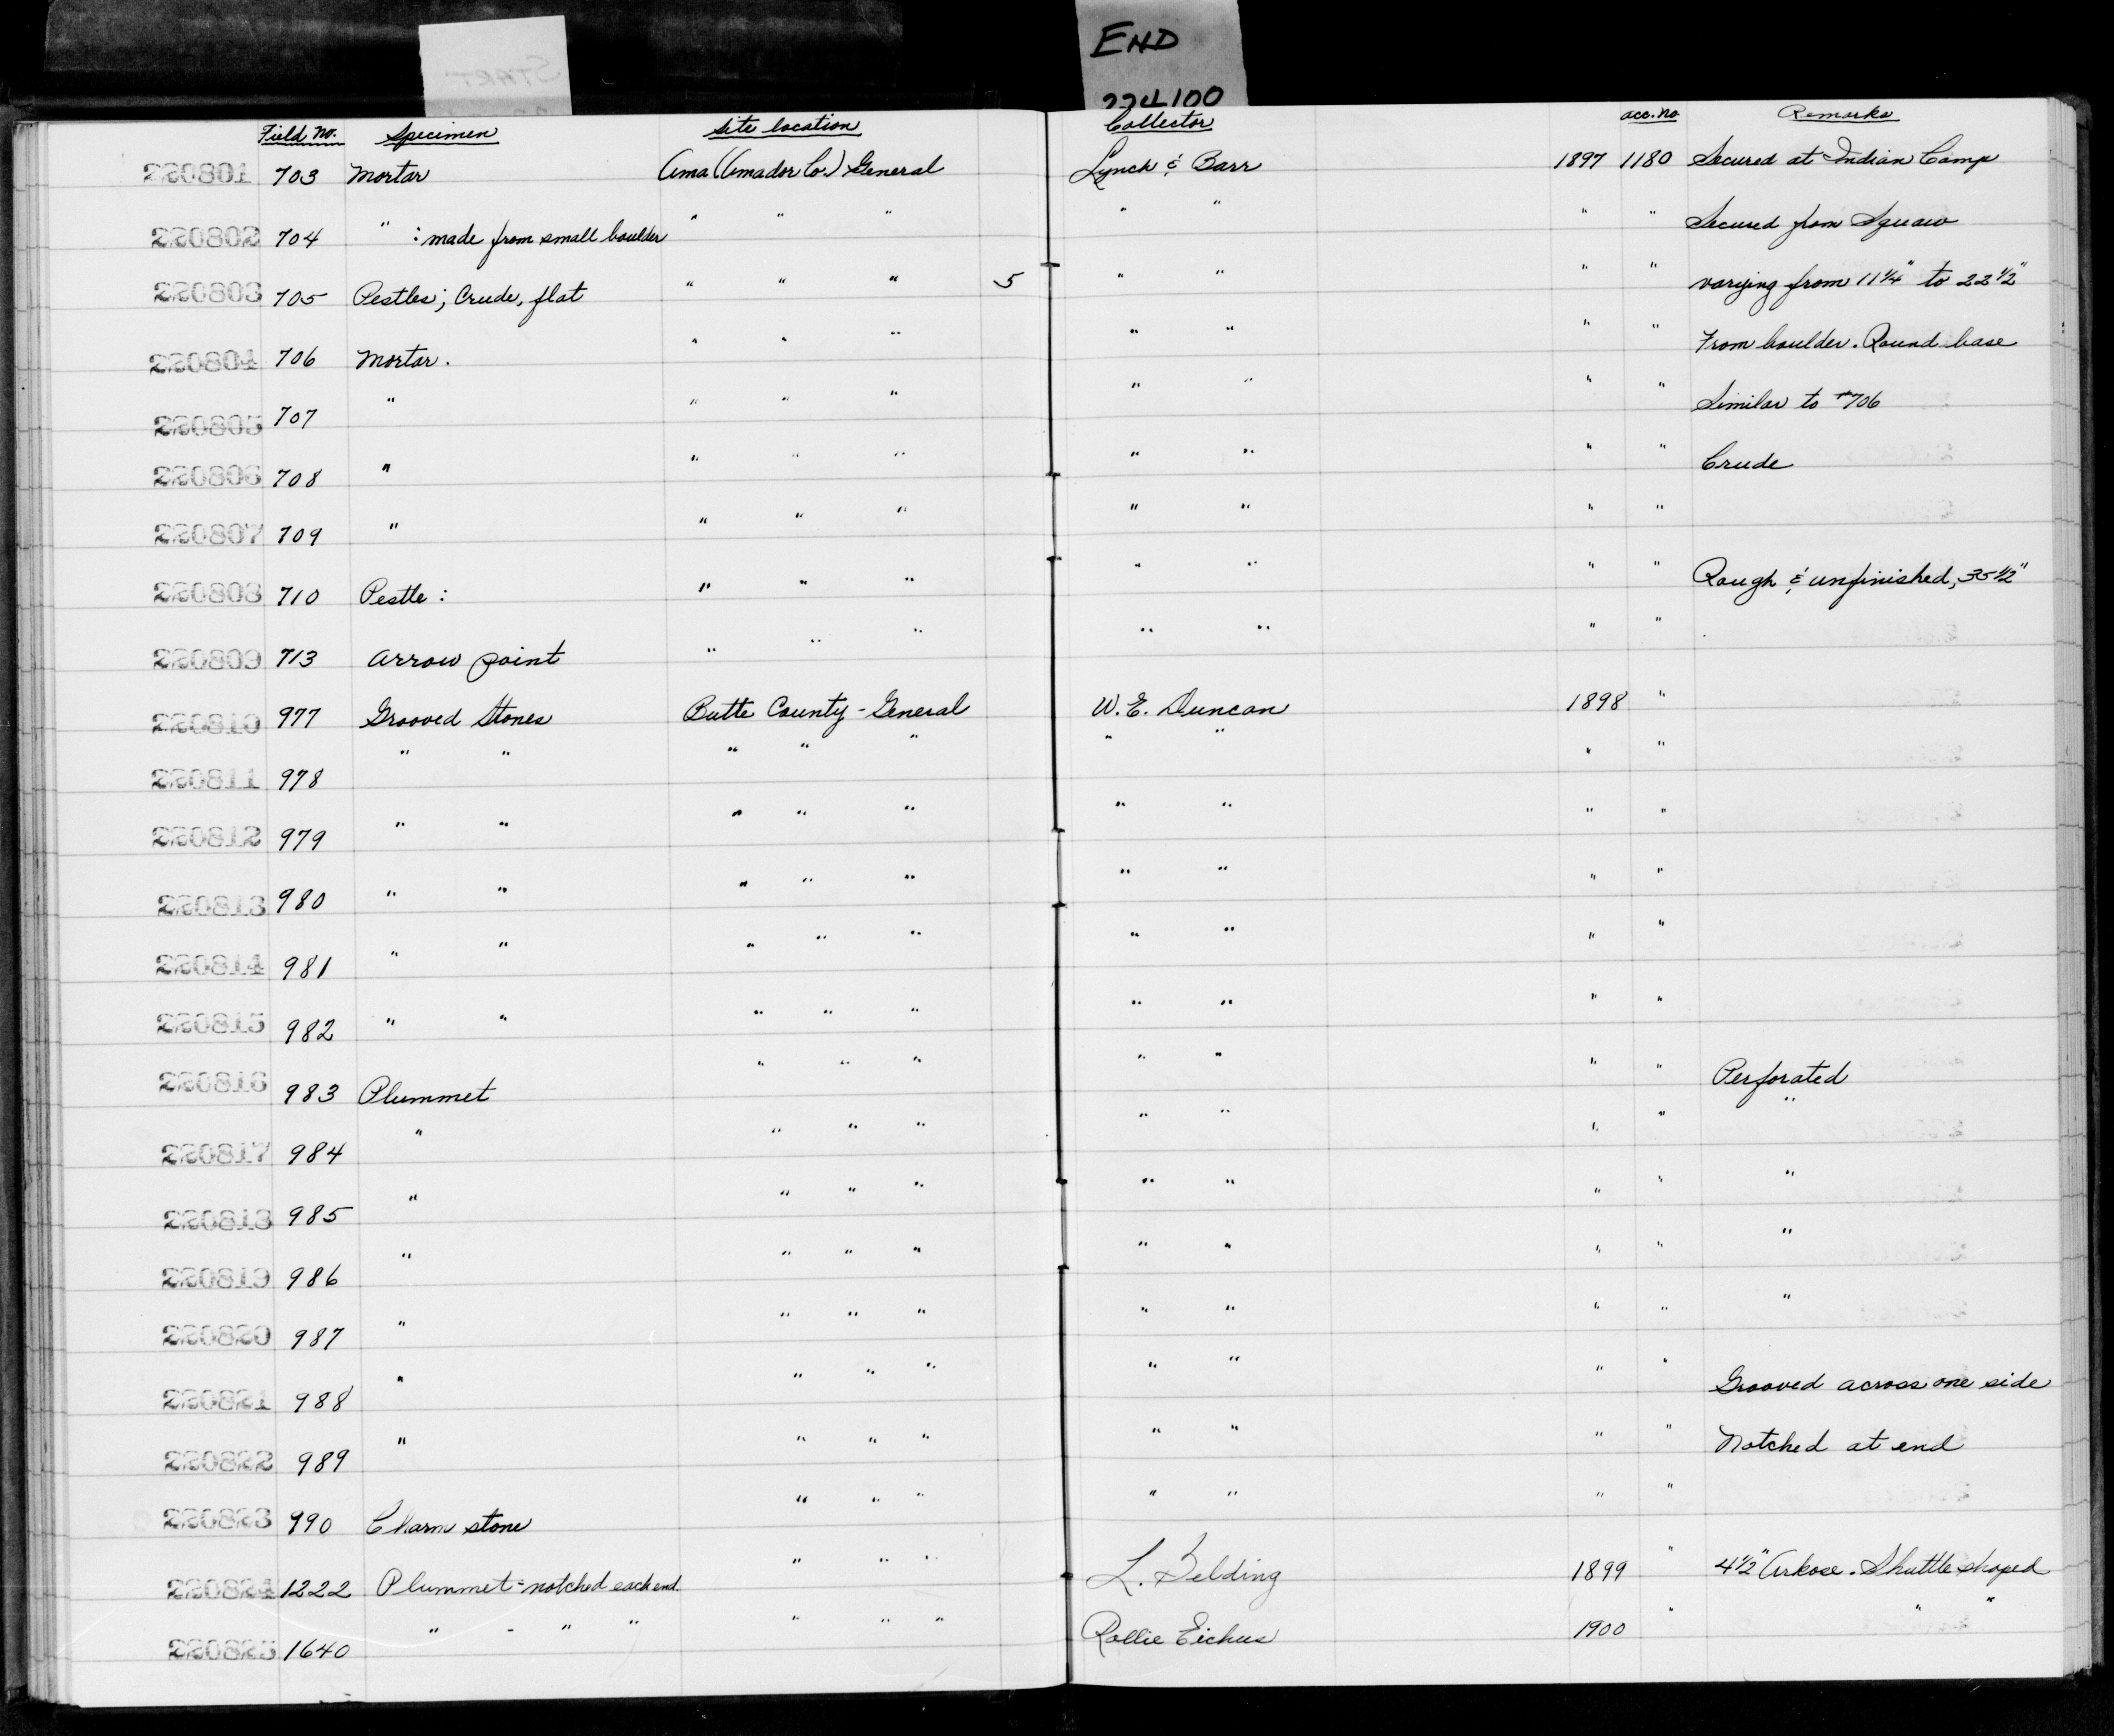 START
END
224100
Field No. Specimen Site location Collector acc. no. Remarks
220801 703 Mortar Ama (Amador Co.) General Lynch & Barr 1897 1180 Secured at Indian Camp
220802 704 " : made from small boulder " " " " " " " Secured from Squaw
220803 705 Pestles; Crude, flat " " " 5 " " " " varying from 11 1/4" to 22 1/2"
220804 706 Mortar. " " " " " " " From boulder. Round base
220805 707 " " " " " " " " Similar to #706
220806 708 " " " " " " " " Crude
220807 709 " " " " " " " "
220808 710 Pestle : " " " " " " " Rough & unfinished, 35 1/2"
220809 713 Arrow point " " " " " " "
220810 977 Grooved Stones Butte County - General W. E. Duncan 1898 "
220811 978 " " " " " " " " "
220812 979 " " " " " " " " "
220813 980 " " " " " " " " "
220814 981 " " " " " " " " "
220815 982 " " " " " " " " "
220816 983 Plummet " " " " " " " Perforated
220817 984 " " " " " " " " "
220818 985 " " " " " " " " "
220819 986 " " " " " " " " "
220820 987 " " " " " " " " "
220821 988 " " " " " " " " Grooved across one side
220822 989 " " " " " " " " Notched at end
220823 990 Charm stone " " " " " " "
220824 1222 Plummet - notched each end. " " " L. Belding 1899 " 4 1/2" Arkose. Shuttle shaped
220825 1640 " - " " " " " Rollie Eichus 1900 " " "